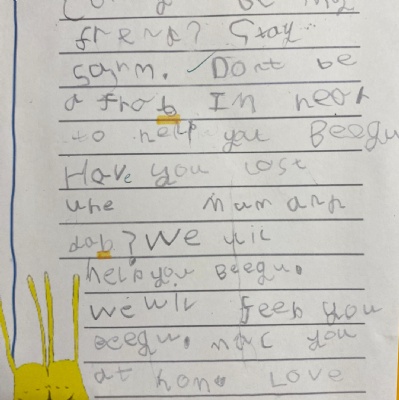 be my
frend? Stay
Dont be
a frab Im hear
to help you Beegu
Have you lost
une mum and
dab? We wil
help you Beegu.
we wil feeb you
Beegu. you
at home Love